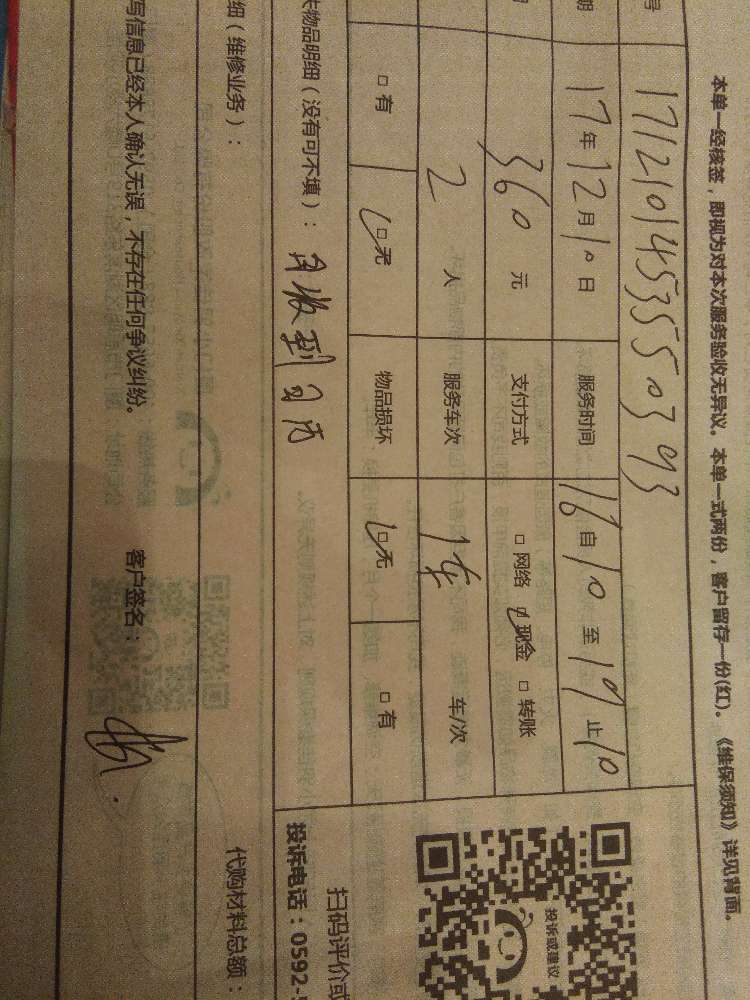 本单一经核签，即视为对本次服务验收无异议。本单一式两份，客户留存一份(红)。《维保须知》详见背面。
号 17121014535550393
期 17年12月10日 服务时间 16自10至19止10
360元 支付方式 □网络 □现金 □转账
2人 服务车次 1车 车/次
□有 □无 物品损坏 □无 □有
失物品明细（没有可不填）：
投诉或建议
扫码评价或
投诉电话：0592-
细（维修业务）： 代购材料总额：
写信息已经本人确认无误，不存在任何争议纠纷。 客户签名：